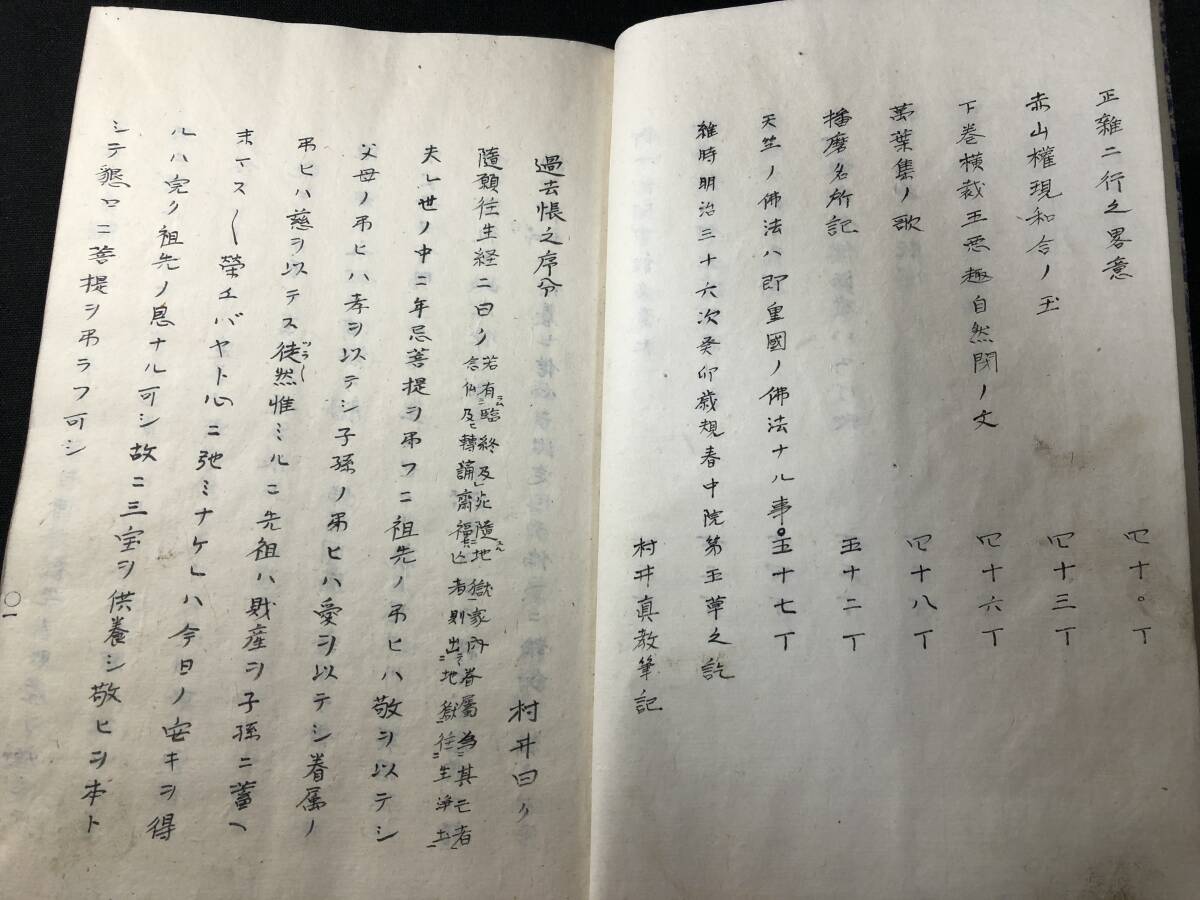 正雜二行之畧意 四十。丁
赤山權現和合ノ玉 四十三丁
下巻横裁五悪趣自然閉ノ文 四十六丁
萬葉集ノ歌 四十八丁
播磨名所記 五十二丁
天竺ノ佛法ハ即皇國ノ佛法ナル事。 五十七丁
維時明治三十六次癸卯歳規春中院第五草之訖
村井眞教筆記
過去帳之序分 村井曰ク
隨願往生経ニ曰ク
若有臨終及死墮地獄家内眷屬為其亡者
念仏及轉誦齋福亡者則出地獄往生淨土
夫レ世ノ中ニ年忌菩提ヲ弔フニ祖先ノ弔ヒハ敬ヲ以テシ
父母ノ弔ヒハ孝ヲ以テシ子孫ノ弔ヒハ愛ヲ以テシ眷属ノ
弔ヒハ慈ヲ以テス徒然惟ミルニ先祖ハ財産ヲ子孫ニ蓄ヘ
末マス〱榮エバヤト心ニ弛ミナケレハ今日ノ安キヲ得
ルハ完ク祖先ノ恩ナル可シ故ニ三宝ヲ供養シ敬ヒヲ本ト
シテ懇ロニ菩提ヲ弔ラフ可シ
〇一